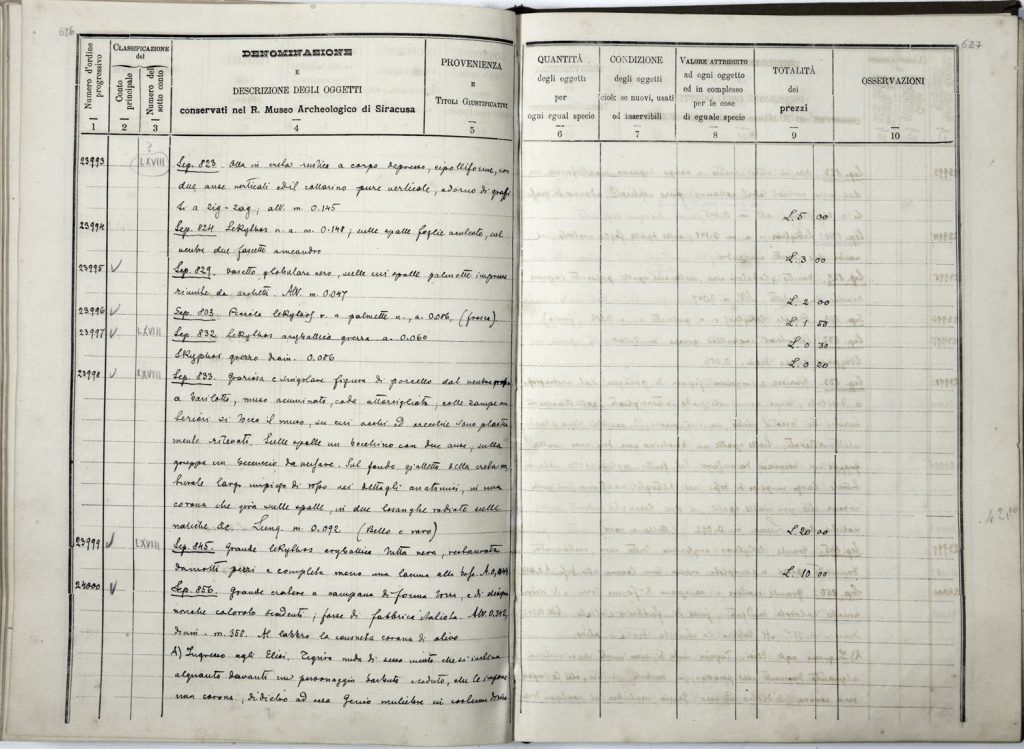 626
Numero d'ordine progressivo
CLASSIFICAZIONE del
Conto principale
Numero del sotto conto
DENOMINAZIONE
E
DESCRIZIONE DEGLI OGGETTI
conservati nel R. Museo Archeologico di Siracusa
PROVENIENZA
E
TITOLI GIUSTIFICATIVI
1 2 3 4 5
?
23993 LXVIII Sep. 823 Olla in creta rustica a corpo depresso, cipolliforme, con
due anse verticali ed il collarino pure verticale, adorno di graffi
ti a zig-zag; alt. m. 0.145
23994 Sep. 824 Lekythos n. a. m. 0.148; sulle spalle foglie aculeate, sul
ventre due fascette a meandro
23995 ✓ Sep. 829. Vasetto globulare nero, sulle cui spalle palmette impresse
riunite da archetti. Alt. m. 0.047
23996 ✓ Sep. 803. Piccola lekythos r. a palmette n., a. 0.086. (fresca)
23997 ✓ LXVIII Sep. 832 Lekythos aryballica grezza a. 0.060
Skyphos grezzo diam. 0.086
23998 ✓ LXVIII Sep. 833. Graziosa e singolare figura di porcello dal ventre
a barilotto, muso acuminato, coda attorcigliata, colle zampe an
teriori si tocca il muso, su cui occhi ed orecchie sono plastica
mente rilevati. Sulle spalle un bocchino con due anse, sulla
groppa un beccuccio da versare. Sul fondo gialletto della creta na
turale largo impiego di rosso nei dettagli anatomici, in una
corona che gira sulle spalle, in due losanghe radiate sulle
natiche &c. Lung. m. 0.092 (Bello e raro)
23999 ✓ LXVIII Sep. 845. Grande lekythos aryballica tutta nera, restaurata
da molti pezzi e completa meno una lacuna alla base.
24000 ✓ Sep. 856. Grande cratere a campana di forma tozza, e di disegno
nonché colorito scadenti; forse di fabbrica italiota. Alt. 0.342,
diam. m. 358. Al labbro la consueta corona di olivo
A) Ingresso agli Elisi. Figura nuda di sesso incerto che si inclina
alquanto davanti un personaggio barbuto seduto, che le impone
una corona, di dietro ad essa Genio muliebre in costume dorico
627
QUANTITÀ
degli oggetti
per
ogni egual specie
CONDIZIONE
degli oggetti
cioè se nuovi, usati
od inservibili
VALORE ATTRIBUITO
ad ogni oggetto
ed in complesso
per le cose
di eguale specie
TOTALITÀ
dei
prezzi
OSSERVAZIONI
6 7 8 9 10
L. 5 00
L. 3 00
L. 2 00
L. 1 50
L. 0 30
L. 0 20
L. 20 00
L. 10 00
42,00